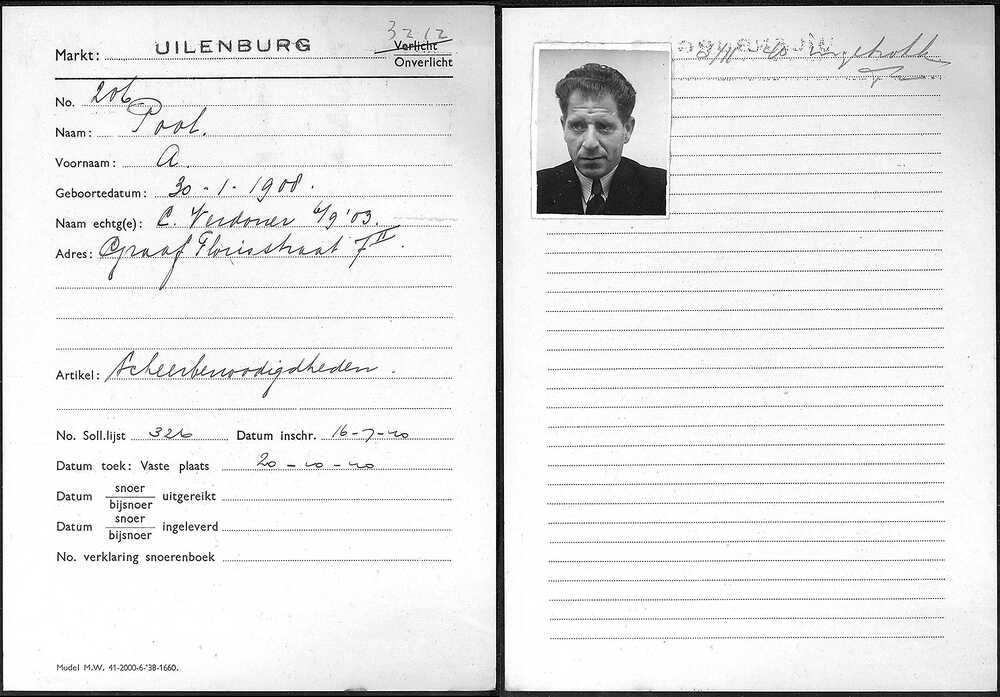 3212
Markt: UILENBURG Verlicht
Onverlicht
No. 206
Naam: Poot.
Voornaam: A.
Geboortedatum: 30-1-1908.
Naam echtg(e): C. Verdoner 6/9 '03.
Adres: Graaf Florisstraat 7 II.
Artikel: Scheerbenoodigdheden.
No. Soll.lijst 326 Datum inschr. 16-7-40
Datum toek: Vaste plaats 20-10-40
Datum snoer/bijsnoer uitgereikt
Datum snoer/bijsnoer ingeleverd
No. verklaring snoerenboek
Model M.W. 41-2000-6-'38-1660.
ingetrokken